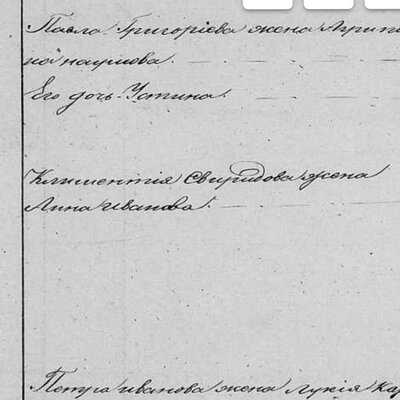 Павла Григоріева жена Агрипи
на наумова.
Его дочь Устина.
Климентія Свиридова жена
Анна иванова.
Петра иванова жена Лукія Кар